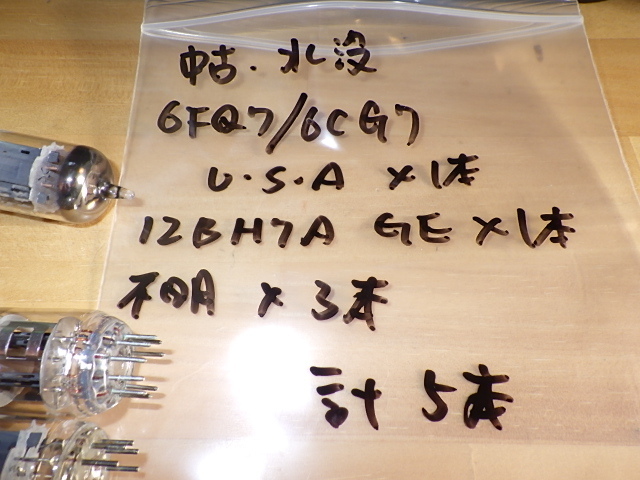 中古・水没
6FQ7/6CG7
U・S・A ×1本
12BH7A GE ×1本
不明 × 3本
計 5本